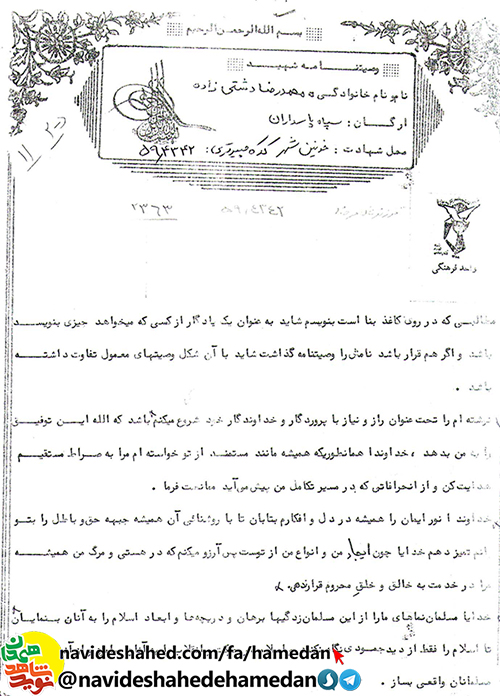 بسم الله الرحمن الرحیم
وصیتنامه شهید
نام و نام خانوادگی: محمدرضا دشتی زاده
ارگان: سپاه پاسداران
محل شهادت: خونین شهر
۲۳۶۳
واحد فرهنگی
مطالبی که در روی کاغذ بنا است بنویسم شاید به عنوان یک یادگار از کسی که میخواهد چیزی بنویسد
باشد و اگر هم قرار باشد نامش را وصیتنامه گذاشت شاید با آن شکل وصیتهای معمول تفاوت داشته
باشد.
نوشته ام را تحت عنوان راز و نیاز با پروردگار و خداوندگار خود شروع میکنم باشد که الله این توفیق
را به من بدهد، خداوندا همانطوریکه همیشه مانند مستمند از تو خواسته ام مرا به صراط مستقیم
هدایت کن و از انحرافاتی که در مسیر تکامل من پیش می‌آید ممانعت فرما.
خداوندا نور ایمان را همیشه در دل و افکارم بتابان تا با روشنائی آن همیشه جبهه حق و باطل را بتو
انم تمیز دهم خدایا چون ایجاد من و انواع من از توست پس آرزو میکنم که در هستی و مرگ من همیشه
مرا در خدمت به خالق و خلق محروم قرار دهی.
خدایا مسلمان نماهای ما را از این مسلمان زدگیها برهان و دریچه‌ها و ابعاد اسلام را به آنان بنمایان
تا اسلام را فقط از دید جمودی
مسلمانان واقعی بساز.
نوید شاهد همدان
navideshahed.com/fa/hamedan
@navideshahedehamedan